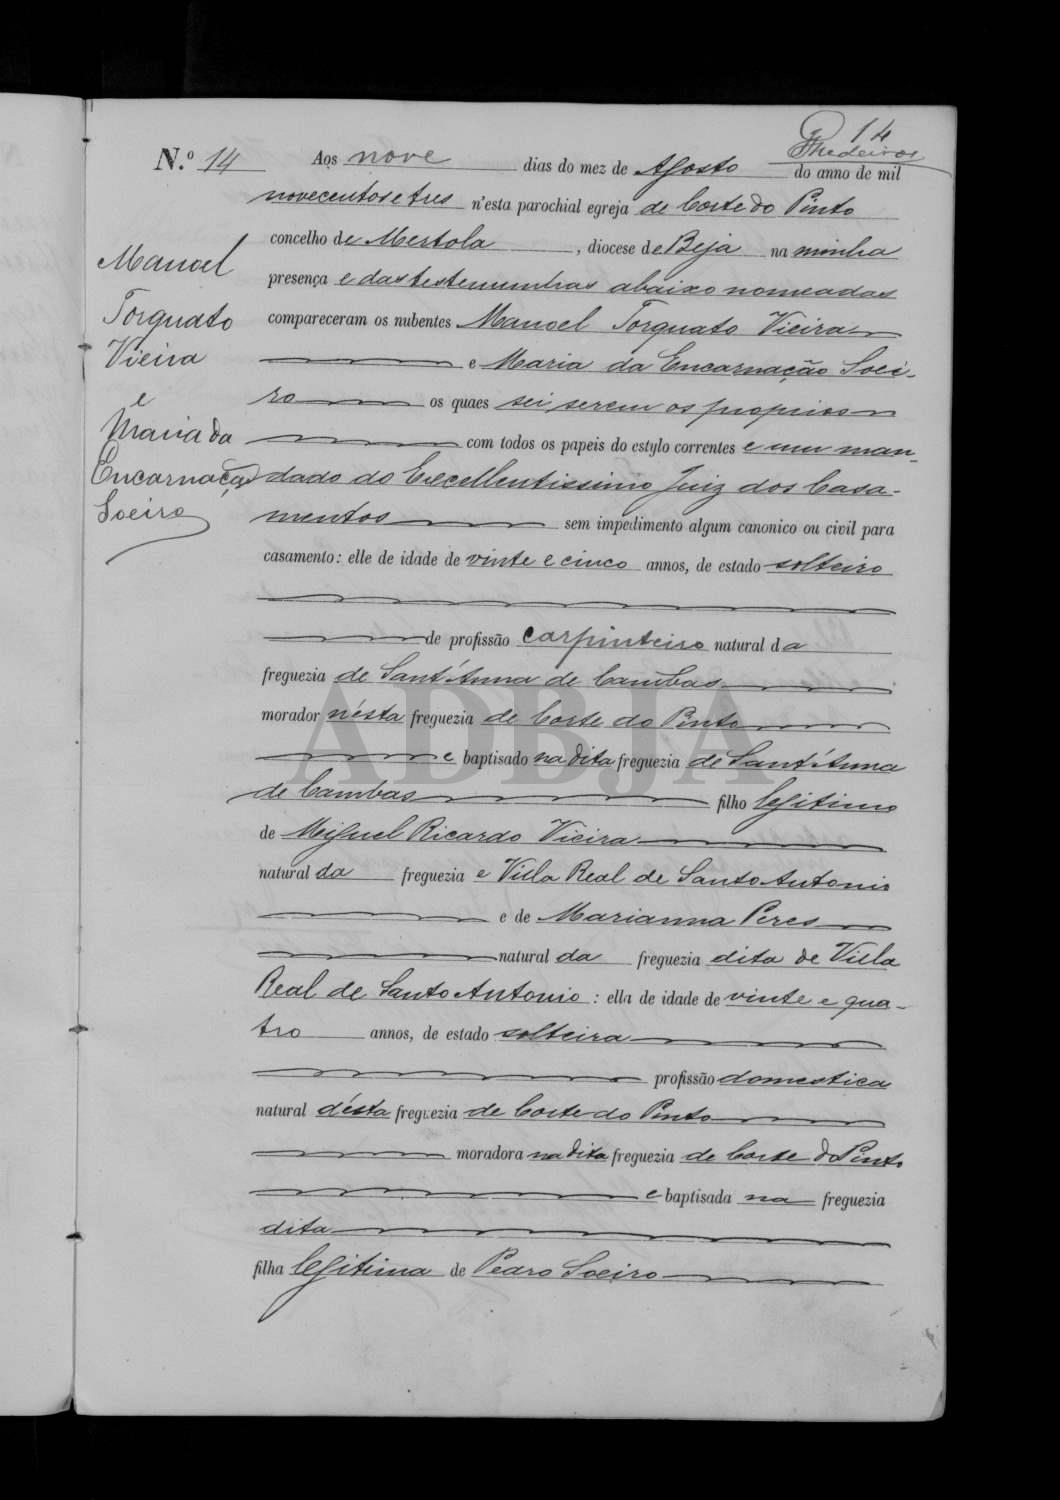 14
Medeiros
N.º 14 Aos nove dias do mez de Agosto do anno de mil
novecentos e tres n'esta parochial egreja de Corte do Pinto
concelho de Mertola, diocese de Beja na minha
presença e das testemunhas abaixo nomeadas
compareceram os nubentes Manoel Torquato Vieira
e Maria da Encarnação Soei-
ro os quaes sei serem os proprios
com todos os papeis do estylo correntes e um man-
dado do Excellentissimo Juiz dos Casa-
mentos sem impedimento algum canonico ou civil para
casamento: elle de idade de vinte e cinco annos, de estado solteiro
de profissão carpinteiro natural da
freguezia de Sant'Anna de Cambas
morador n'esta freguezia de Corte do Pinto
e baptisado na dita freguezia de Sant'Anna
de Cambas filho legitimo
de Miguel Ricardo Vieira
natural da freguezia e Villa Real de Santo Antonio
e de Marianna Peres
natural da freguezia dita de Villa
Real de Santo Antonio: ella de idade de vinte e qua-
tro annos, de estado solteira
profissão domestica
natural d'esta freguezia de Corte do Pinto
moradora na dita freguezia de Corte do Pinto
e baptisada na freguezia
dita
filha legitima de Pedro Soeiro
Manoel
Torquato
Vieira
e
Maria da
Encarnação
Soeiro
ADBJA